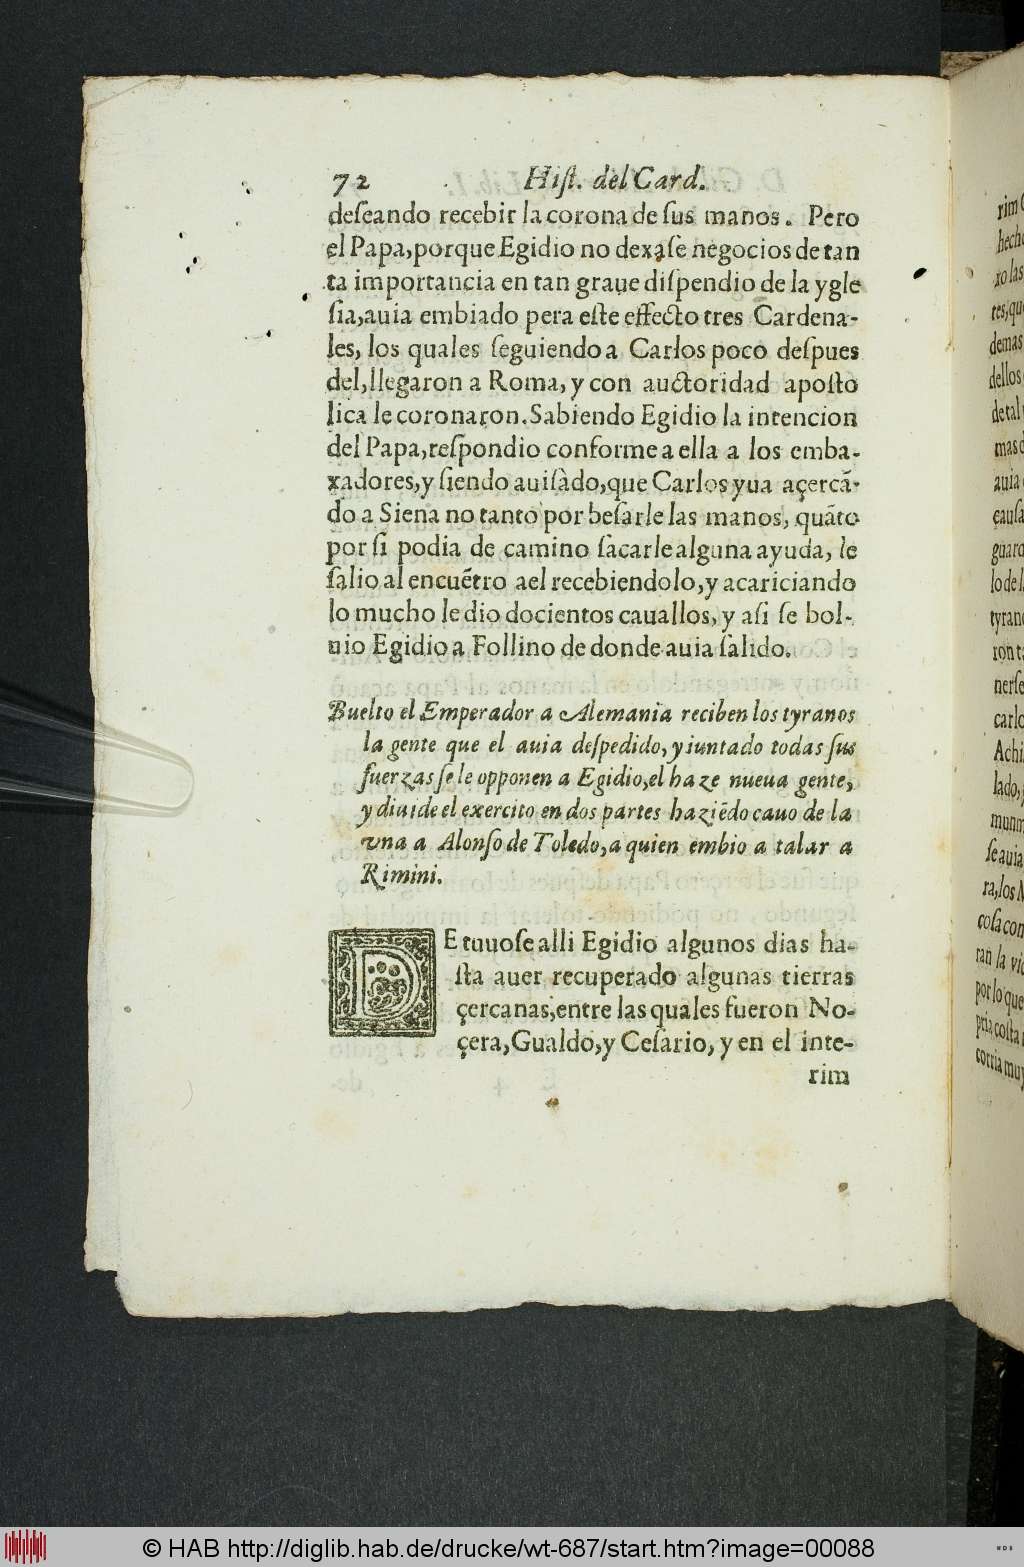 72 Hiſt. del Card.
deſeando recebir la corona de ſus manos. Pero
el Papa, porque Egidio no dexaſe negocios de tan
ta importancia en tan graue diſpendio de la ygle
ſia, auia embiado pera eſte effecto tres Cardena-
les, los quales ſeguiendo a Carlos poco deſpues
del, llegaron a Roma, y con auctoridad apoſto
lica le coronaron. Sabiendo Egidio la intencion
del Papa, reſpondio conforme a ella a los emba-
xadores, y ſiendo auiſàdo, que Carlos yua açercā-
do a Siena no tanto por beſarle las manos, quāto
por ſi podia de camino ſacarle alguna ayuda, le
ſalio al encuẽtro ael recebiendolo, y acariciando
lo mucho le dio docientos cauallos, y aſi ſe bol-
uio Egidio a Follino de donde auia ſalido.
Buelto el Emperador a Alemania reciben los tyranos
la gente que el auia deſpedido, y iuntado todas ſus
fuerzas ſe le opponen a Egidio, el haze nueua gente,
y diuide el exercito en dos partes haziẽdo cauo de la
vna a Alonſo de Toledo, a quien embio a talar a
Rimini.
DE tuuoſe alli Egidio algunos dias ha-
ſta auer recuperado algunas tierras
çercanas, entre las quales fueron No-
çera, Gualdo, y Ceſario, y en el inte-
rim
rim
hech
xo las
tes, qu
demas
dellos
de tal
mas
auia
cauſa
guar
lo de
tyran
ron
nerſe
carlo
Achi
lado,
munm
ſe auia
ra, los
coſa con
ran la vi
por lo que
pria coſta
corria muy
© HAB http://diglib.hab.de/drucke/wt-687/start.htm?image=00088